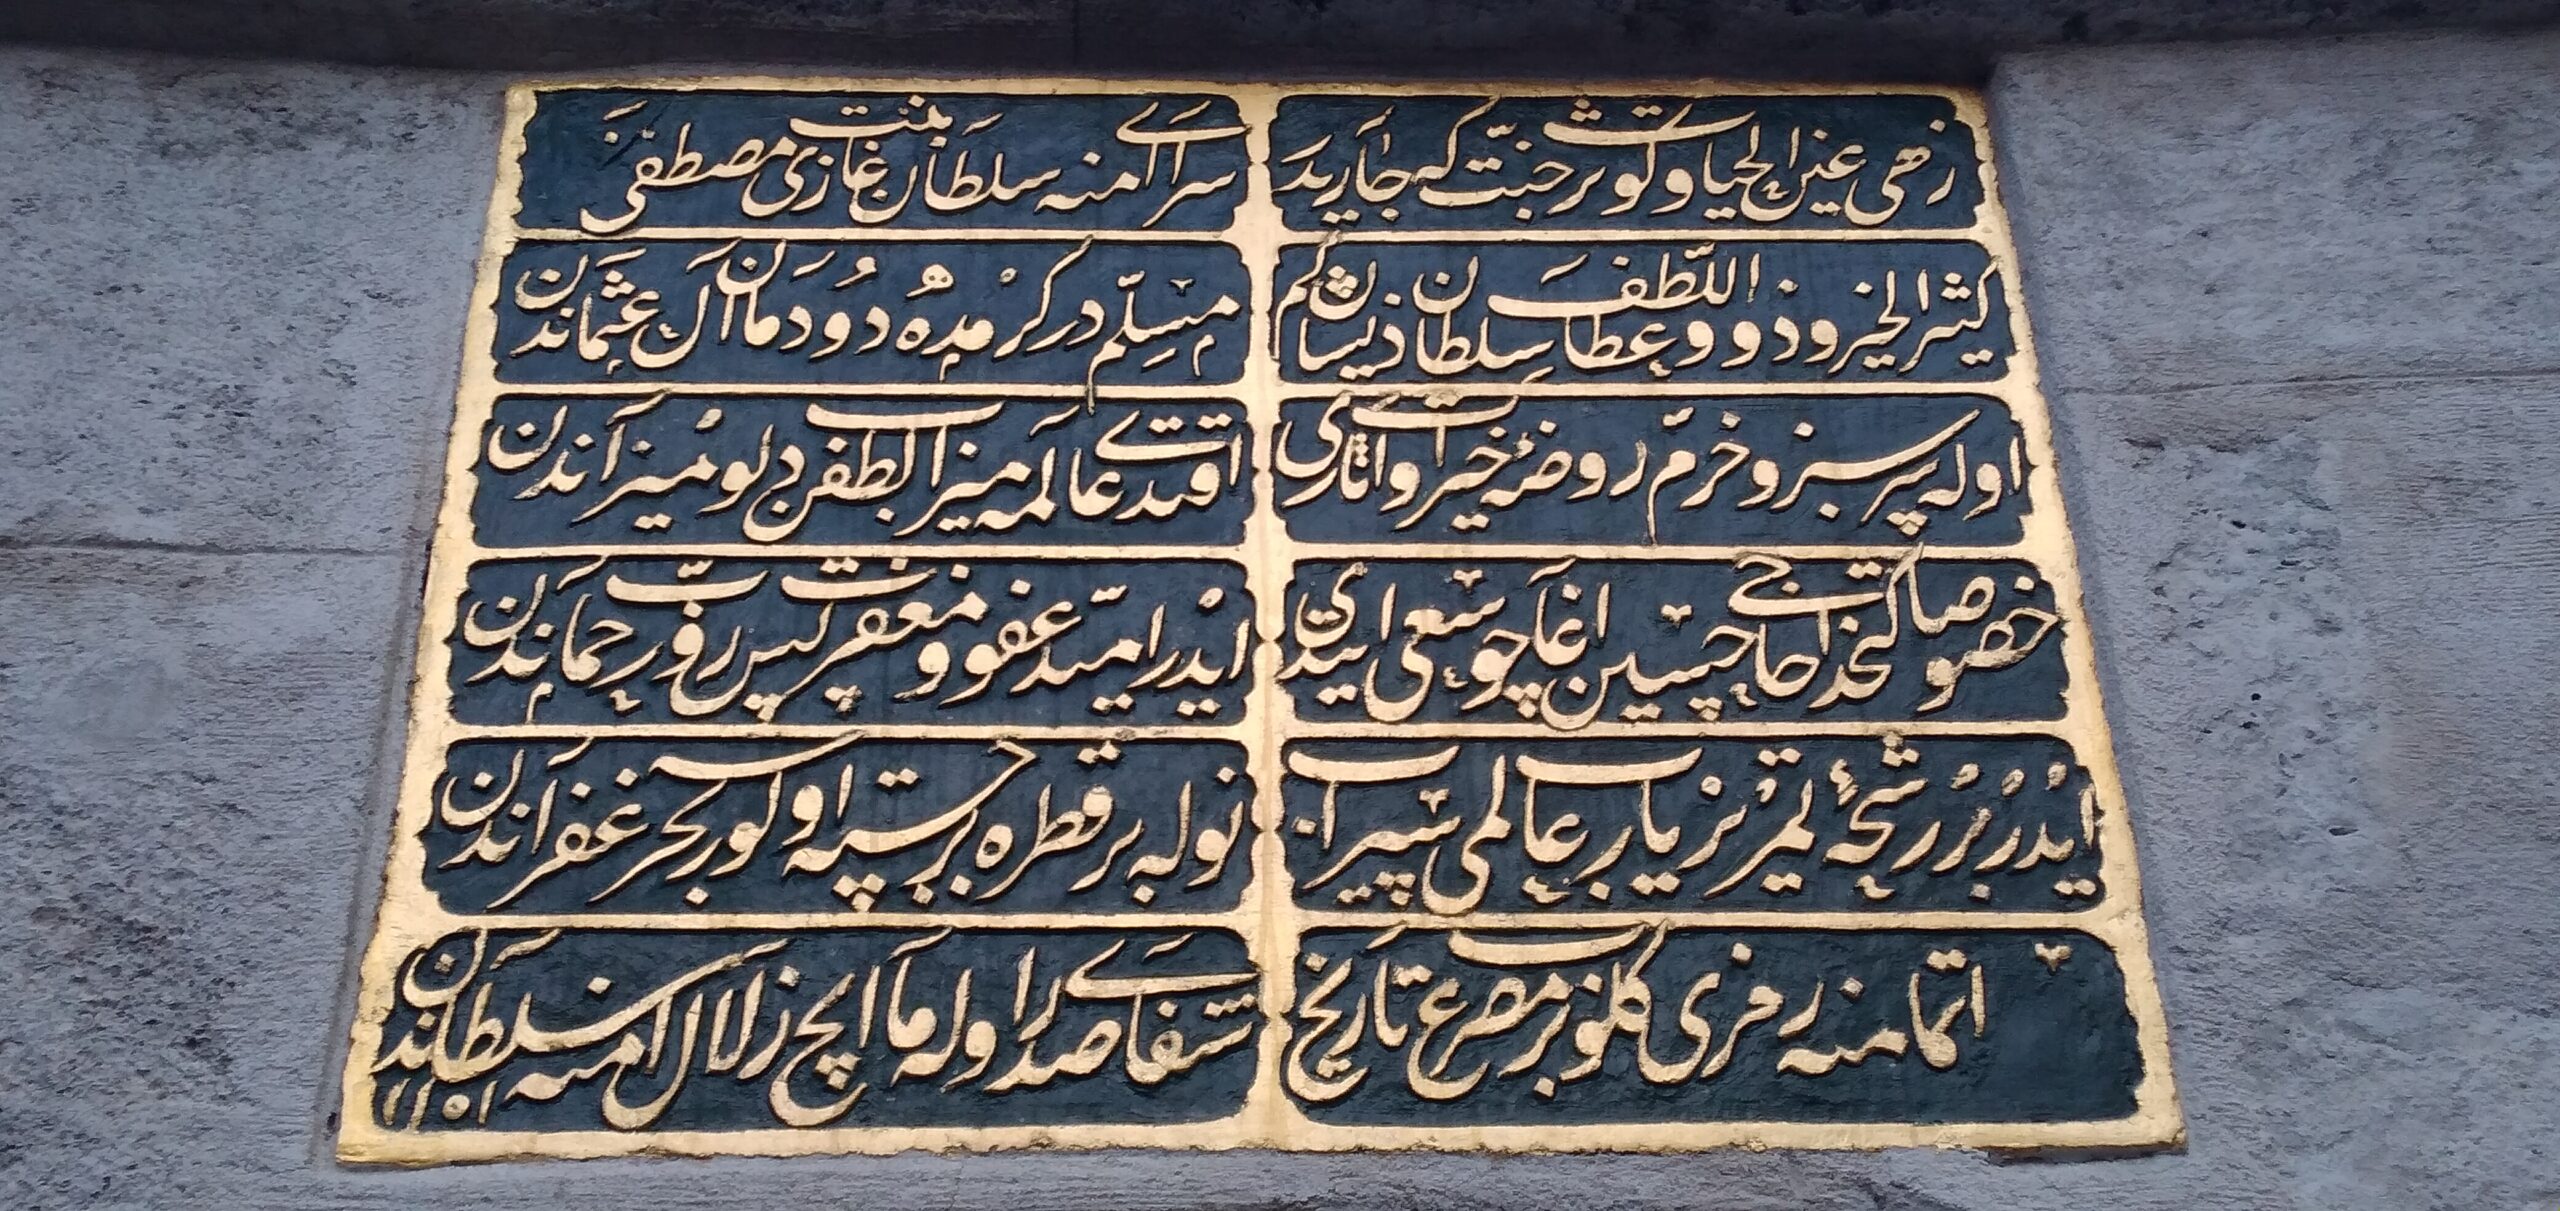 زهی عین الحیات و کوثر جنت که جاریدر
سرای امنه سلطان بنت غازی مصطفی
کثیر الخیر و ذو اللطف و عطا سلطان ذیشانکم
مسلم در کرمده دودمان آل عثماندن
اوله پر سبز و خرم روضه خیرات و اثاری
اقتدی عالمه میزاب لطفن دلو میزاندن
خصوصا کتخدا حاجی حسین اغا چو سعی ایتدی
ایدر امید عفو و مغفرت پس رؤف رب رحماندن
ایدر بر رشحه تمر نریاب عالمی سیراب
نوله بر قطره برجسته اولور سه بحر غفراندن
اتمامنه رمزی کلنور بر مصرع تاریخ
شفای صدر اوله ما ایچ زلال امنه سلطاندن
۱۱۵۱